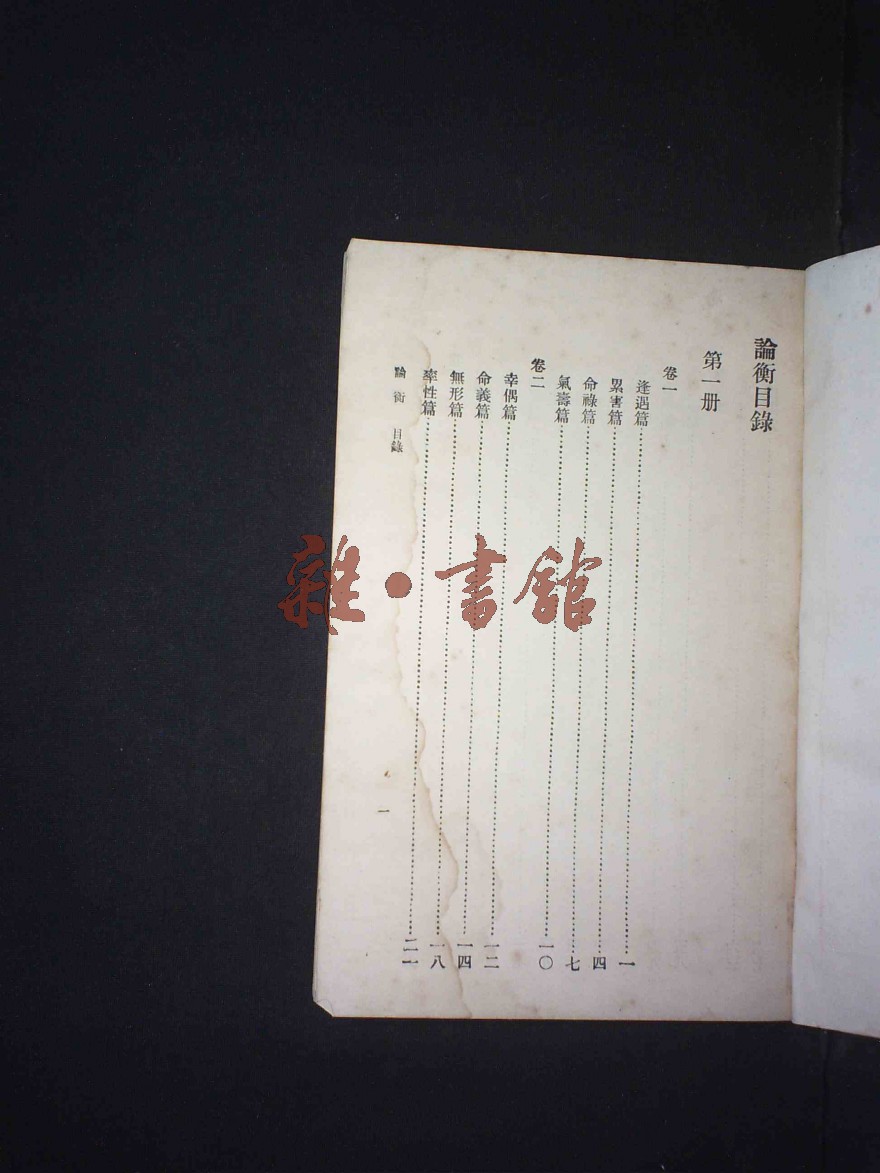 論衡目錄
第一册
卷一
逢遇篇…………一
累害篇…………四
命祿篇…………七
氣壽篇…………一〇
卷二
幸偶篇…………一二
命義篇…………一四
無形篇…………一八
率性篇…………二一
論衡 目錄
一
雜·書館